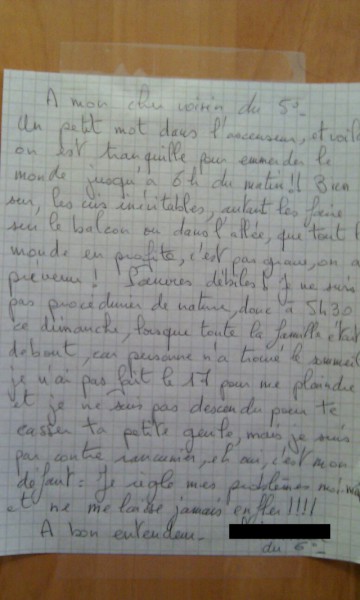 A mon cher voisin du 5°-
Un petit mot dans l'ascenseur, et voilà
on est tranquille pour emmerder le
monde jusqu'à 6h du matin!! Bien
sûr, les cris inévitables, autant les faire
sur le balcon ou dans l'allée, que tout l
monde en profite, c'est pas grave, on a
prévenu! Pauvres débiles! Je ne suis
pas procédurier de nature, donc à 5h30
ce dimanche, lorsque toute la famille étai
debout, car personne n'a trouvé le sommeil
je n'ai pas fait le 17 pour me plaindre
et je ne suis pas descendu pour te
casser ta petite gueule, mais je suis
par contre rancunier, et oui, c'est mon
défaut: Je règle mes problèmes moi-mê
et ne me laisse jamais enfler!!!!
A bon entendeur-
du 6°